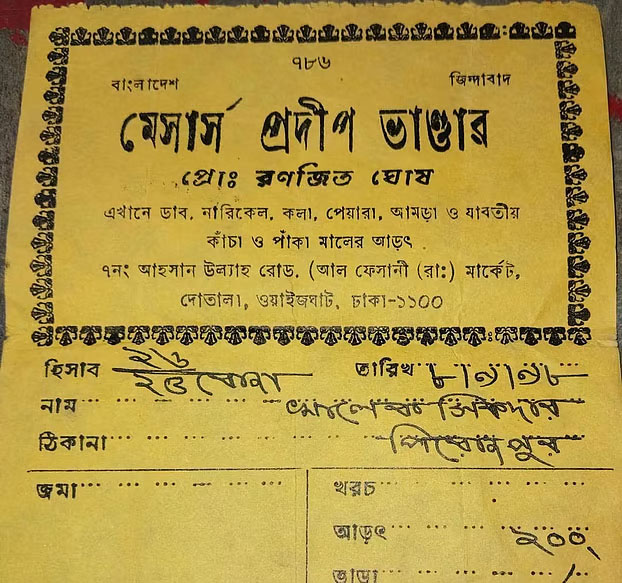 ৭৮৬
বাংলাদেশ জিন্দাবাদ
মেসার্স প্রদীপ ভাণ্ডার
প্রোঃ রণজিত ঘোষ
এখানে ডাব, নারিকেল, কলা, পেয়ারা, আমড়া ও যাবতীয়
কাঁচা ও পাঁকা মালের আড়ৎ
৭নং আহসান উল্যাহ রোড, (আল ফেসানী (রা:) মার্কেট,
দোতালা, ওয়াইজঘাট, ঢাকা-১১০০
হিসাব তারিখ
নাম সিকদার
ঠিকানা
জমা খরচ
আড়ৎ ২০০৲
ভাড়া